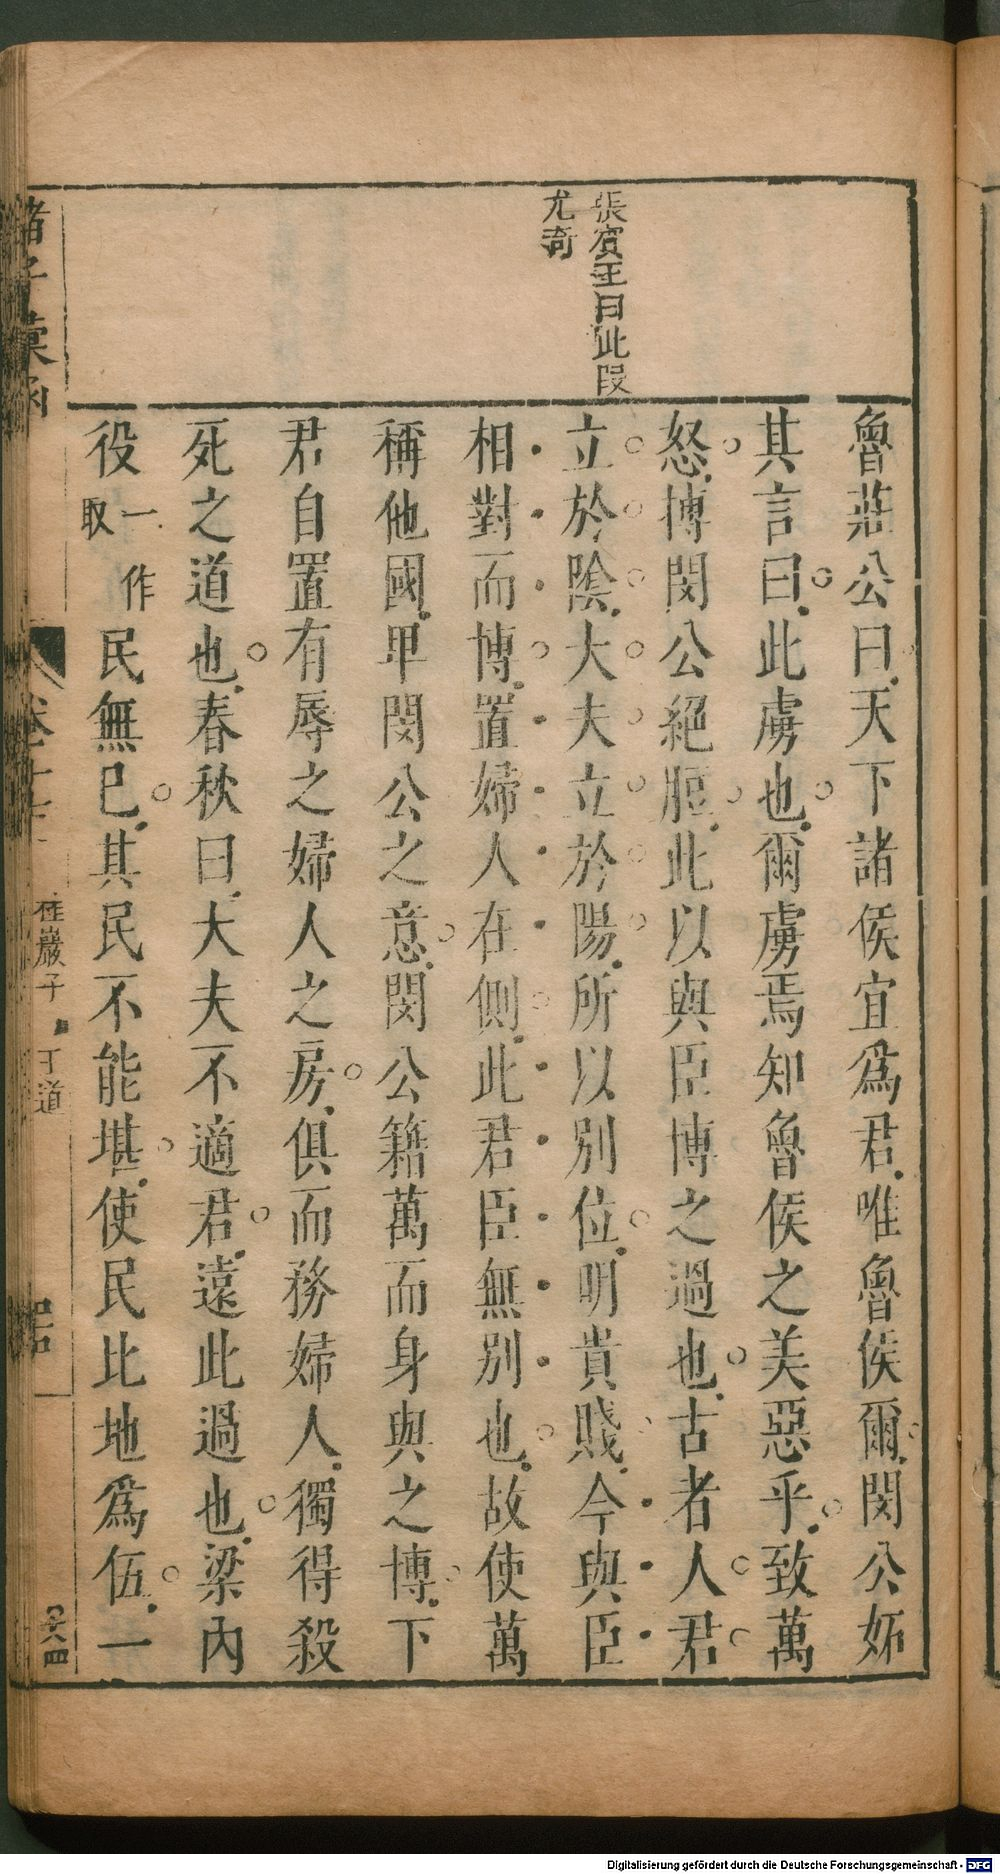 張賓王曰此段
尤奇
魯莊公曰天下諸侯宜爲君唯魯侯爾閔公妬
其言曰此虜也爾虜焉知魯侯之美惡乎致萬
怒搏閔公絕脰此以與臣博之過也古者人君
立於陰大夫立於陽所以別位明貴賤今與臣
相對而博置婦人在側此君臣無別也故使萬
稱他國卑閔公之意閔公籍萬而身與之博下
君自置有辱之婦人之房俱而務婦人獨得殺
死之道也春秋曰大夫不適君遠此過也梁內
役一作取民無已其民不能堪使民比地爲伍一
諸子彙函
卷十七
桂巖子
王道
Digitalisierung gefördert durch die Deutsche Forschungsgemeinschaft - DFG